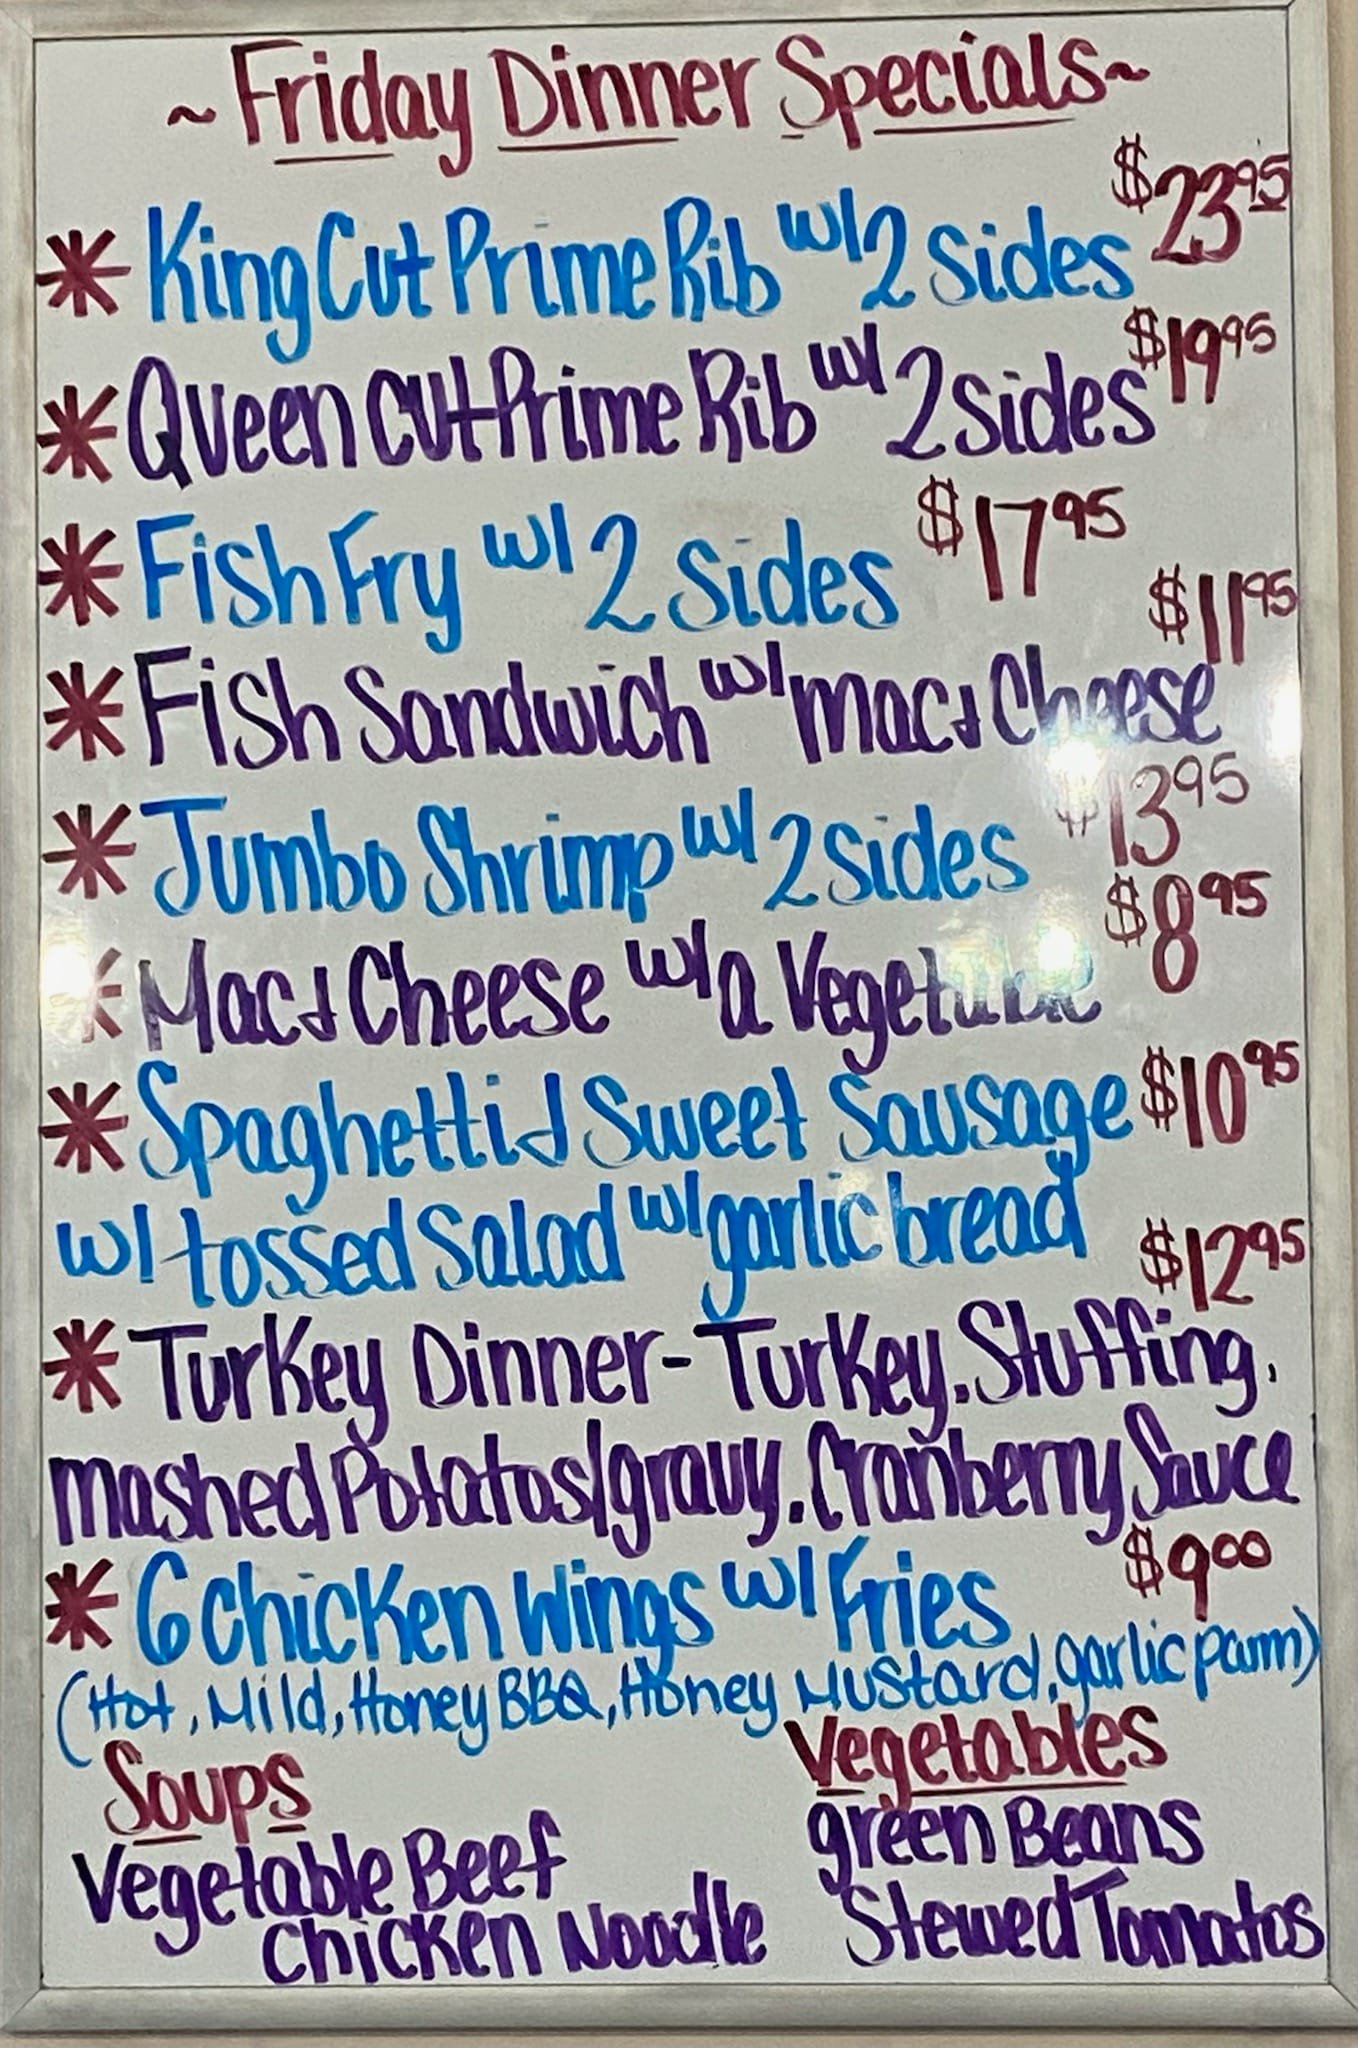 ~Friday Dinner Specials~
* King Cut Prime Rib w/ 2 sides $23.95
* Queen Cut Prime Rib w/ 2 sides $19.95
* Fish Fry w/ 2 sides $17.95
* Fish Sandwich w/ mac & Cheese $11.95
* Jumbo Shrimp w/ 2 sides $13.95
* Mac & Cheese w/ a Vegetable $8.95
* Spaghetti & Sweet Sausage $10.95
w/ tossed Salad w/ garlic bread
* Turkey Dinner - Turkey, Stuffing, $12.95
mashed Potatos/gravy, Cranberry Sauce
* 6 Chicken Wings w/ Fries $9.00
(Hot, Mild, Honey BBQ, Honey Mustard, garlic parm)
Soups
Vegetable Beef
Chicken Noodle
Vegetables
green Beans
Stewed Tomatos